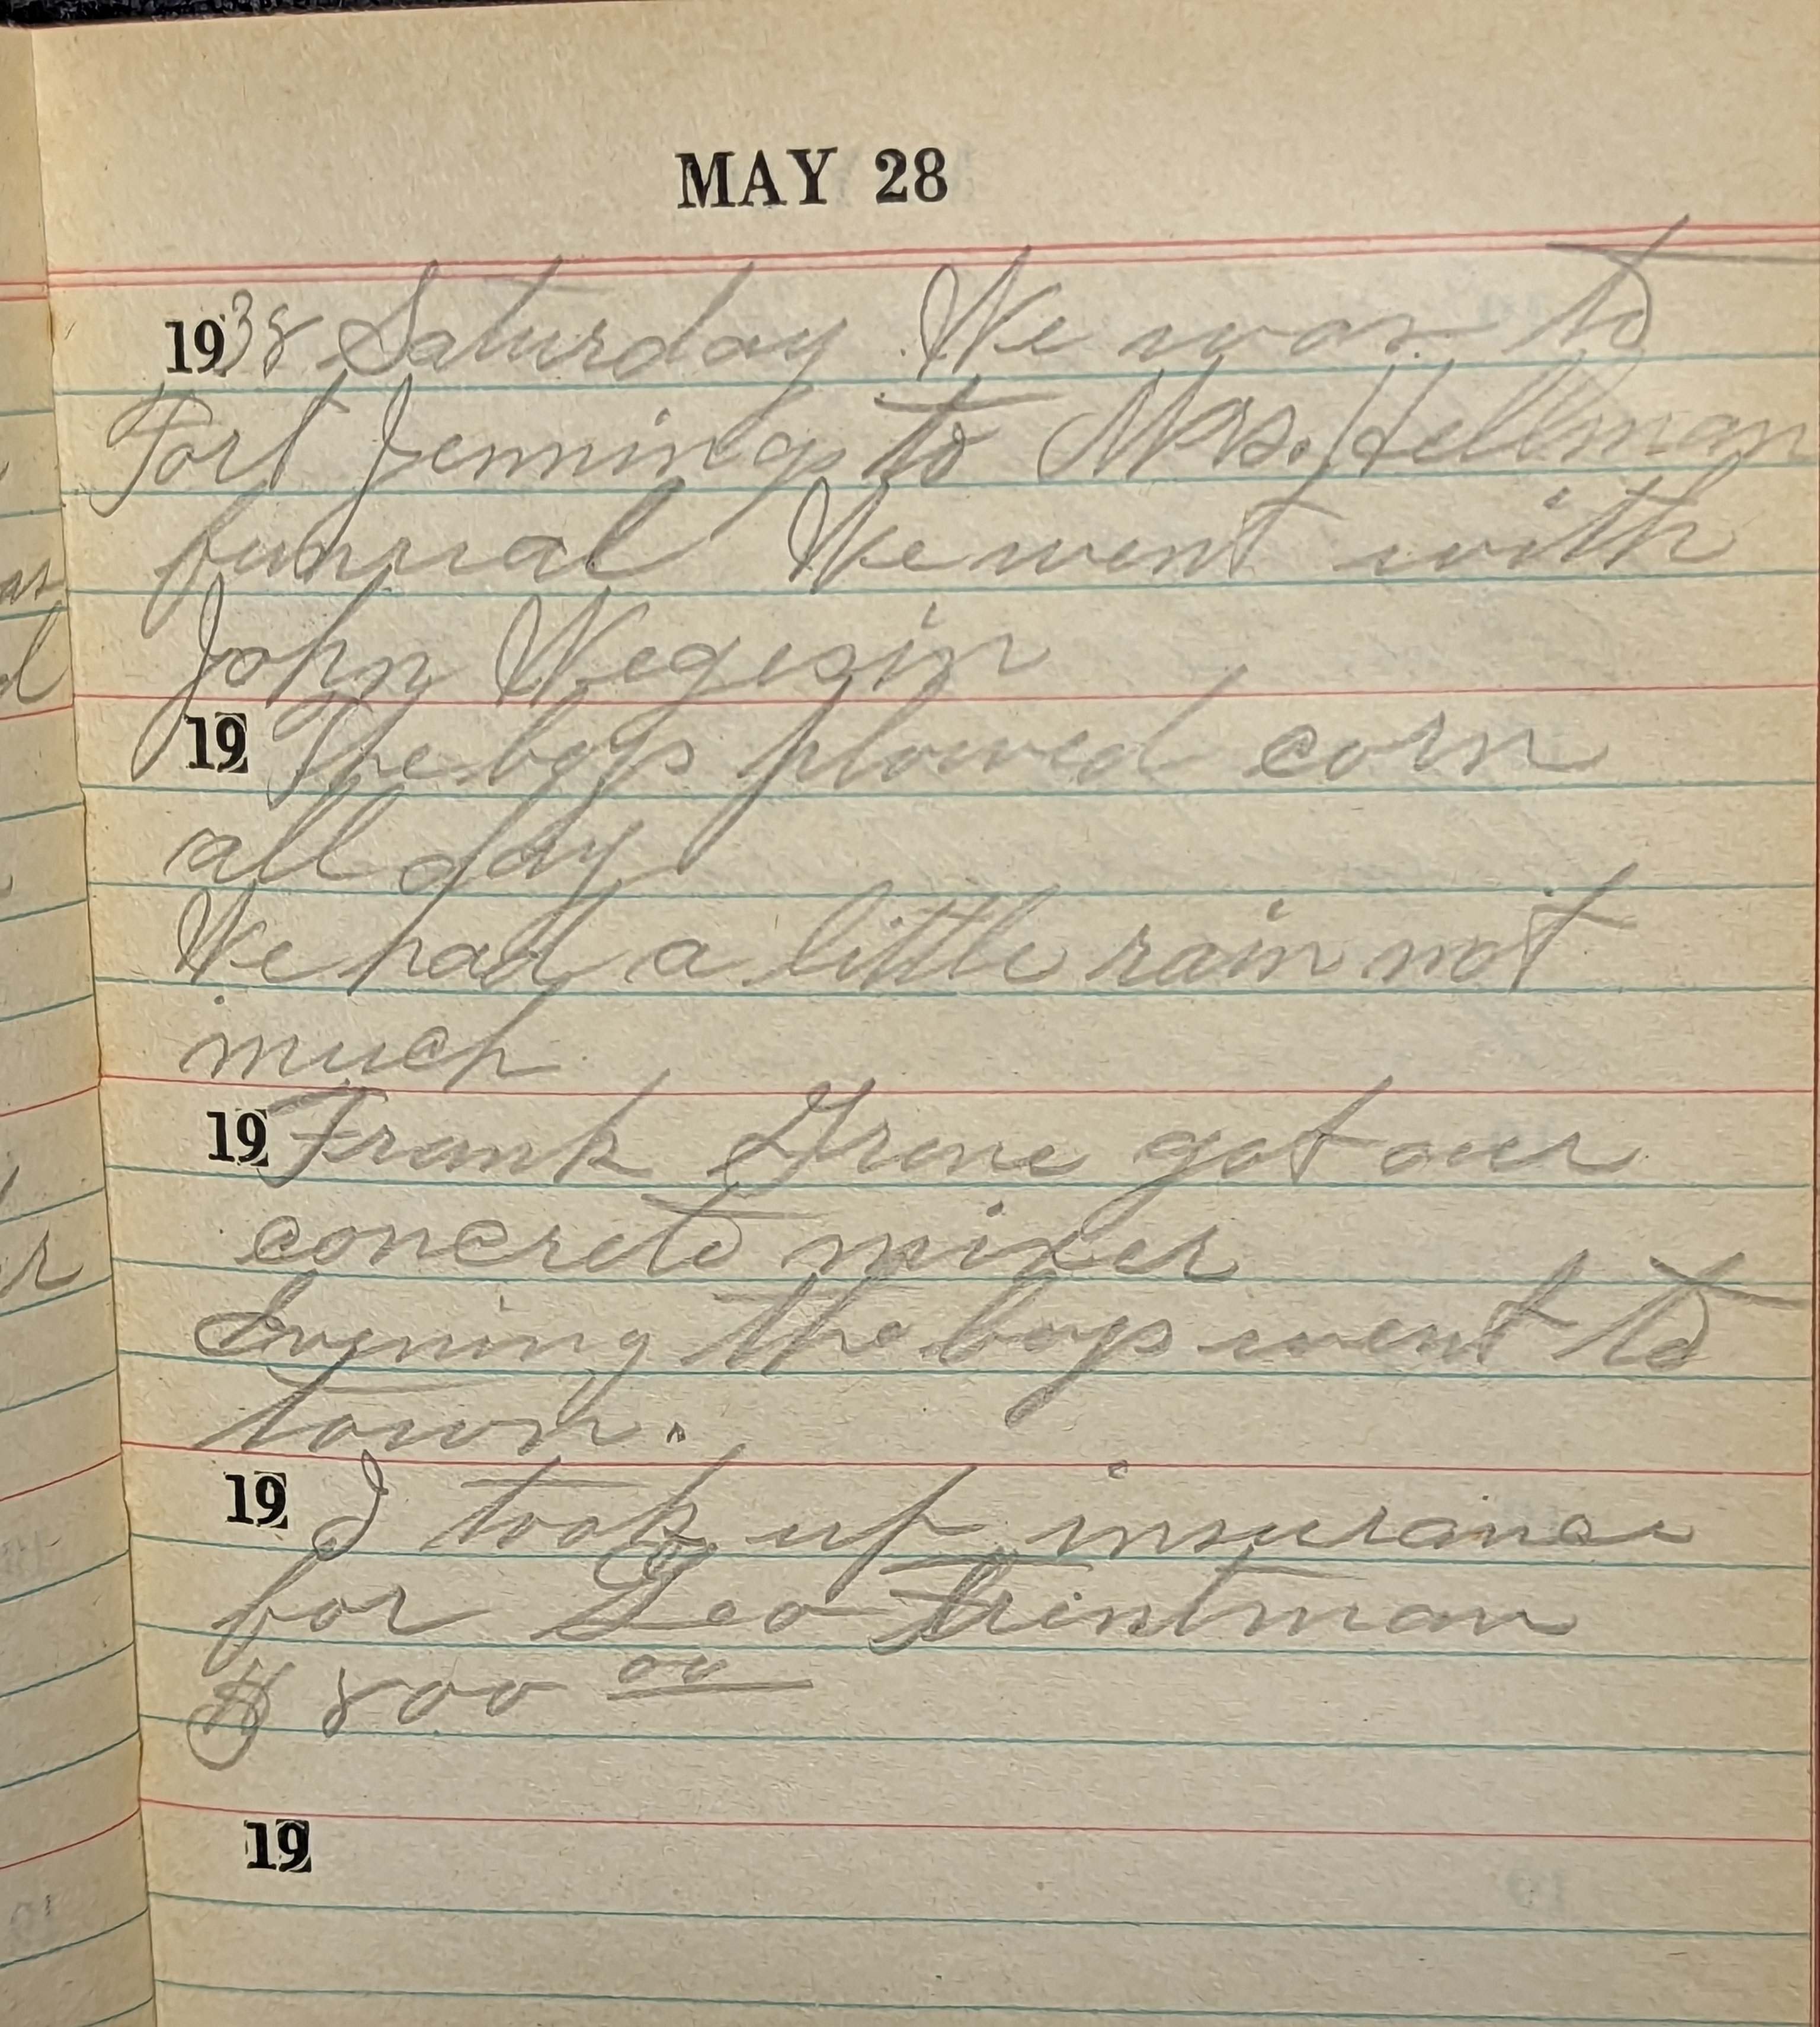 MAY 28
1938 Saturday We was to
Fort Jennings to Mrs. Hellman
funeral We went with
John Wegesin
19 The boys plowed corn
all day
We had a little rain not
much
19 Frank Grone got our
concrete mixer
Evening the boys went to
town.
19 I took up insurance
for Leo Trintman
$ 800 00
19